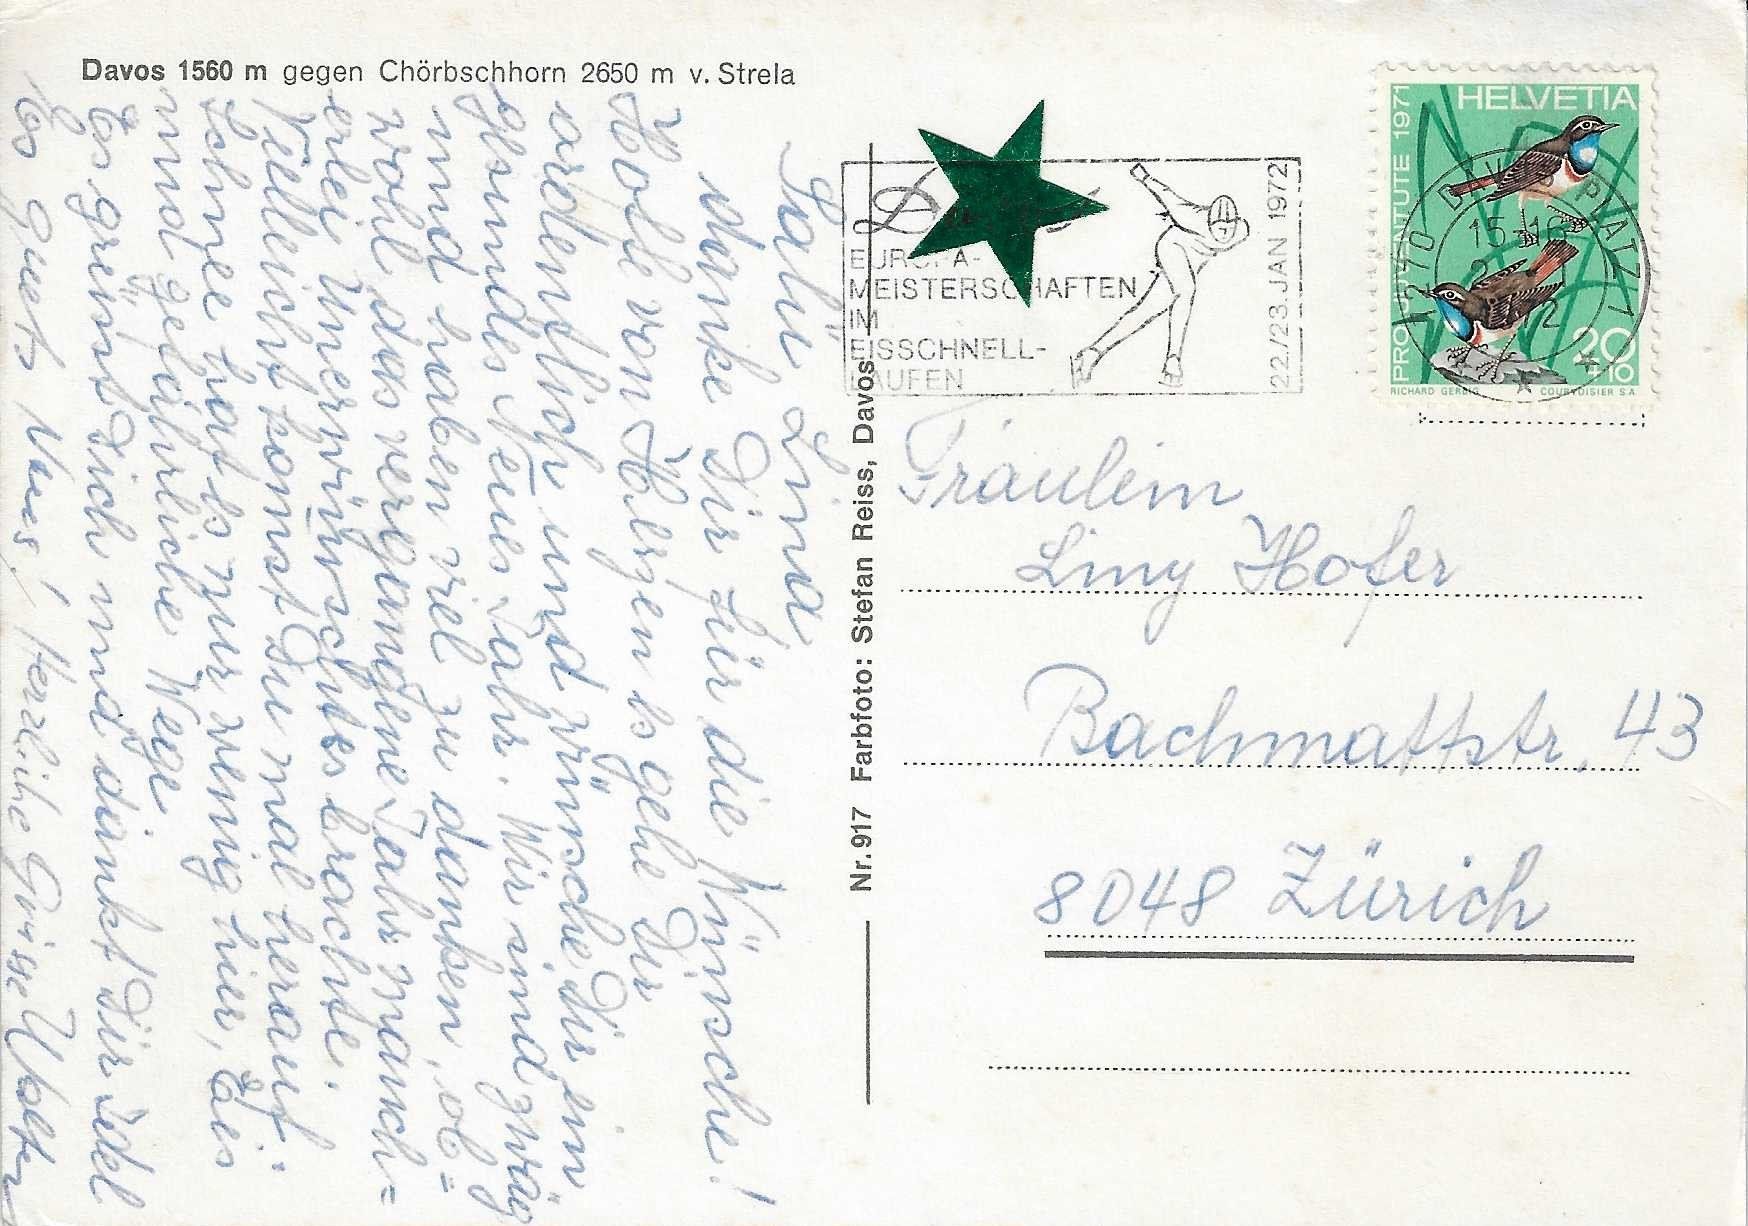 Davos 1560 m gegen Chörbschhorn 2650 m v. Strela
Salü Lina,
danke Dir für die Wünsche!
Hoffe von Herzen es gehe Dir
ordentlich und wünsche Dir ein
gesundes Neues Jahr. Wir sind zwar
und haben viel zu danken, ob=
wohl das vergangene Jahr manch=
erlei Unerwünschtes brachte.
Vielleicht komst Du mal herauf.
Schnee hat's nur wenig hier, Eis
und gefährliche Wege.
Es grüsst Dich und dankt Dir
Es guets Neus! Herzliche Grüsse
Nr. 917 Farbfoto: Stefan Reiss, Davos
EUROPA-
MEISTERSCHAFTEN
IM
EISSCHNELL-
LAUFEN
22./23. JAN 1972
HELVETIA
PRO JUVENTUTE 1971
20
+10
RICHARD GERBIG
COURVOISIER S A
7270 DAVOS PLATZ 1
15-16
Fräulein
Liny Hofer
Bachmattstr. 43
8048 Zürich